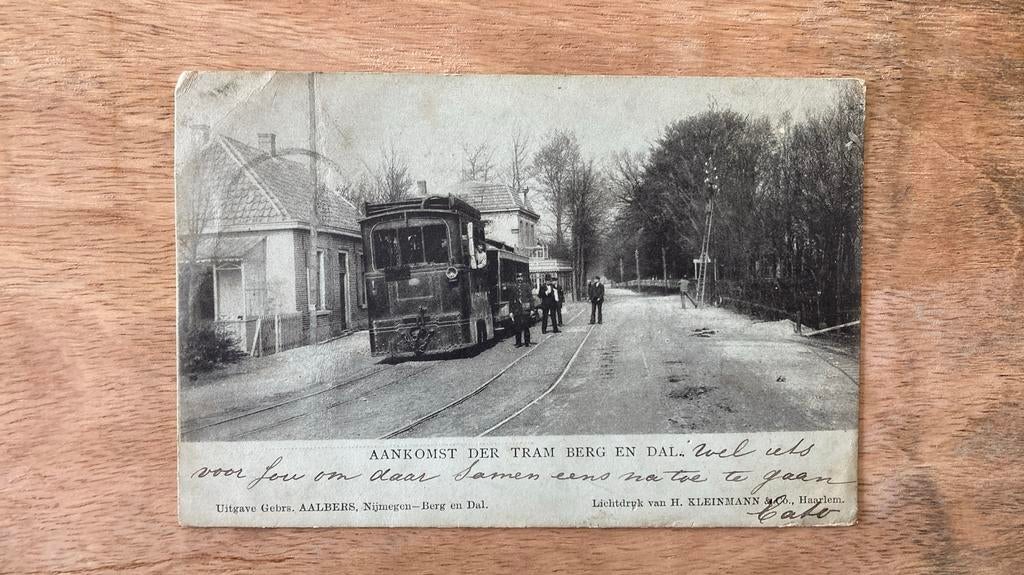 AANKOMST DER TRAM BERG EN DAL. Wel iets
voor Jou om daar Samen eens na toe te gaan
Uitgave Gebrs. AALBERS, Nijmegen—Berg en Dal.
Lichtdruk van H. KLEINMANN & Co., Haarlem.
Cato